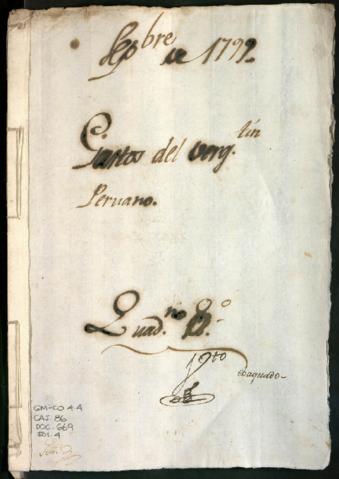 Sepbre
de 1799.
Gastos del verg.lin
Peruano.
Quad.no 8.o
GM-CO 44
CAJ. 86
DOC. 669
FOJ. 4